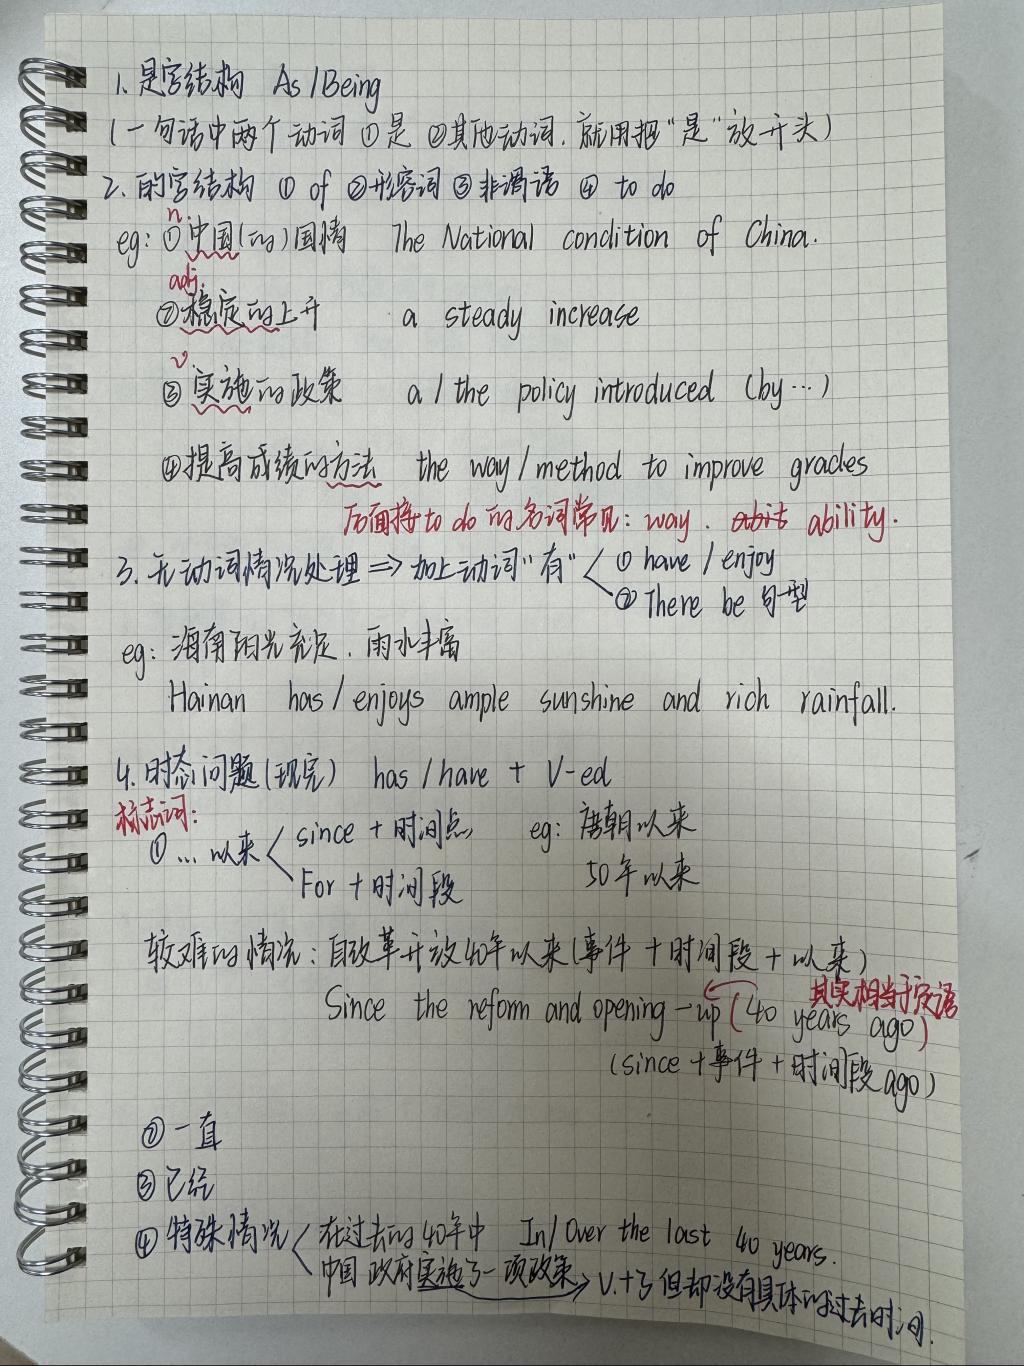 1. 是字结构 As/Being
(一句话中两个动词 ①是 ②其他动词. 就用把"是"放开头)
2. 的字结构 ① of ②形容词 ③非谓语 ④ to do
n
eg: ①中国(的)国情 The National condition of China.
adj.
②稳定的上升 a steady increase
v
③实施的政策 a/the policy introduced (by…)
④提高成绩的方法 the way/method to improve grades
后面接to do的名词常见: way. ability.
3. 无动词情况处理 => 加上动词"有" ① have/enjoy
② There be 句型
eg: 海南阳光充足. 雨水丰富
Hainan has/enjoys ample sunshine and rich rainfall.
4. 时态问题(现完) has/have + V-ed
标志词:
① … 以来 since + 时间点 eg: 唐朝以来
For + 时间段 50年以来
较难的情况: 自改革开放40年以来(事件 + 时间段 + 以来)
其实相当于定语
Since the reform and opening-up (40 years ago)
(since + 事件 + 时间段 ago)
② 一直
③ 已经
④ 特殊情况 在过去的40年中 In/Over the last 40 years.
中国政府实施了一项政策 V.+了 但却没有具体的过去时间.